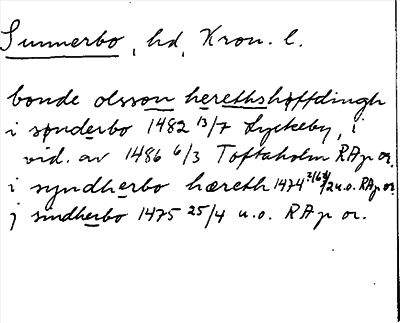 Sunnerbo, hd, Kron. l.
bonde olsson herethshøffdingh
i sønderbo 1482 13/7 Lyckeby, i
vid. av 1486 6/3 Toftaholm RAp or.
i syndherbo hæreth 1474 u.o. RAp or.
j sindherbo 1475 25/4 u.o. RAp or.